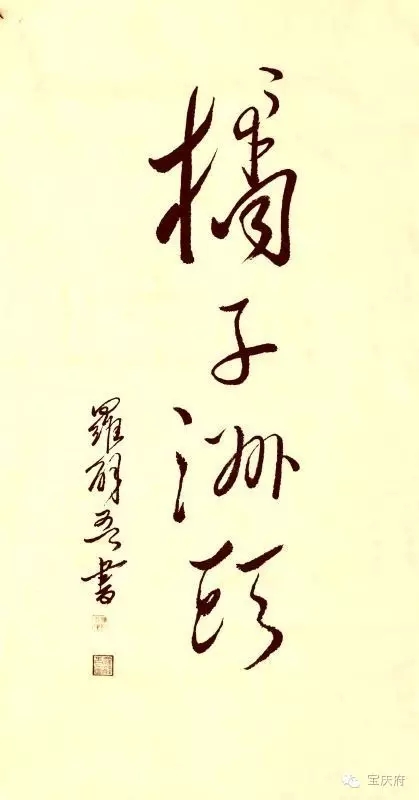 橘子洲頭
羅醒吾書
宝庆府